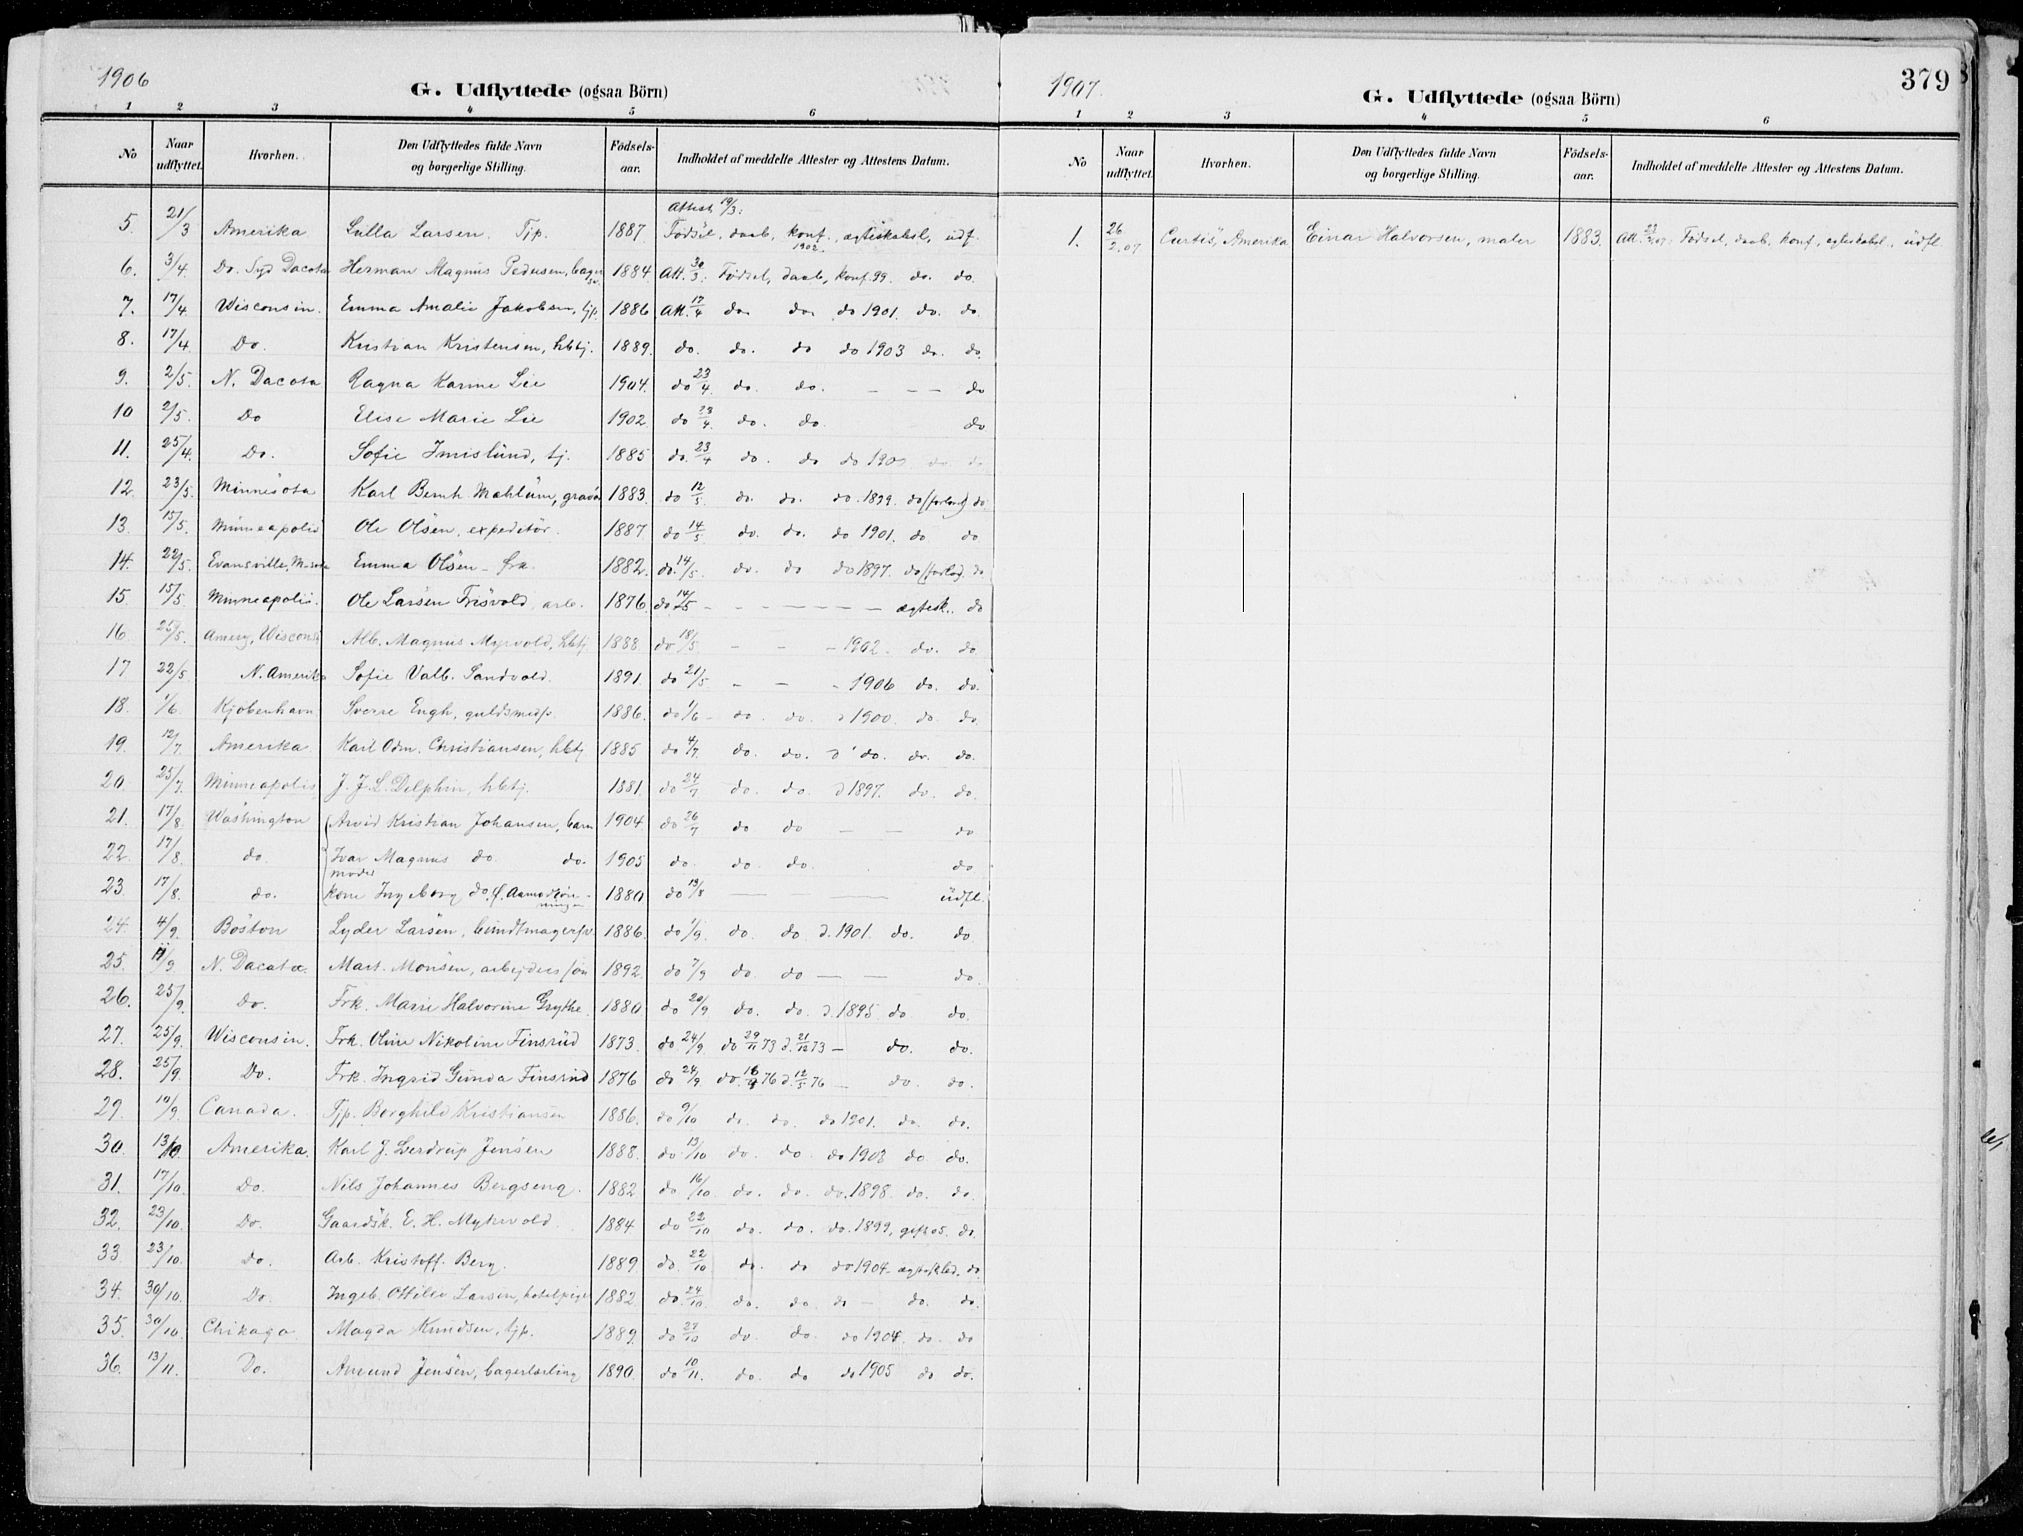 1906
G. Udflyttede (ogsaa Börn)
1 2 3 4 5 6
No Naar udflyttet. Hvorhen. Den Udflyttedes fulde Navn og borgerlige Stilling. Födsels-aar. Indholdet af meddelte Attester og Attestens Datum.
Attest 19/3:
5. 21/3 Amerika Lulla Larsen. Tjp. 1887. Fødsel, daab, konf. 1902, ægteskabsl, udf.
6. 3/4. Do. Syd Dacota Herman Magnus Pedersen, bager sv. 1884 Att. 30/3: Fødsel, daab, konf. 99. do. do.
7. 17/4 Wisconsin. Emma Amalie Jakobsen, tjp. 1886 Att. 17/4 do. do. do 1901. do. do.
8. 17/4 Do. Kristian Kristensen, hbtj. 1889. do. do. do do 1903 do. do.
9. 2/5. N. Dacota Ragna Karine Lie 1904. do 23/4. do. do. — — — do
10 2/5. Do Elise Marie Lie 1902. do 23/4. do. do. do
11. 25/4. Do. Sofie Imislund, tj. 1885 do. 23/4 do. do do 190 do. do
12. 23/5. Minnesota Karl Bernh. Mæhlum, gravør 1883. do 12/5. do. do. do. 1899. do (forlov) do.
13. 15/5. Minneapolis Ole Olsen, expeditør. 1887 do 14/5 do. do. do 1901. do do
14. 22/5. Evansville, M.sota Emma Olsen - frk. 1882. do. 14/5. do. do do 1897. do (forlod). do
15. 15/5. Minneapolis. Ole Larsen Trøsvold, arb. 1876. do 14/5 — — — — — — ægtesk.. do
16 25/5. Amery, Wisconsi Alb. Magnus Myrvold, hbtj. 1888. do 18/5. — — — 1902. do. do.
17 22/5 N. Amerika Sofie Valb. Sandvold. 1891. do 21/5 — — — 1906 do. do.
18. 1/6. Kjøbenhavn Sverre Engh, guldsmedsv. 1886. do 1/6 — do. do. d 1900. do. do.
19. 12/7. Amerika. Karl Odm. Christiansen, hbtj. 1885 do 4/7 do. do. d' do. do. do.
20. 25/7. Minneapolis J. J. L. Delphin, hbtj. 1881. do 24/7 do. do. d 1897. do. do.
21. 17/8. Washington Arvid Kristian Johansen, barn 1904. do 26/7 do do — — do
22 17/8. do. Ivar Magnus do. do. 1905 do. do. do. do
23 17/8. do. moder kone Ingeborg do. f. Aamodt 1880 do 13/8 — — udfl.
24. 4/9. Boston Lyder Larsen, bundtmagersv. 1886. do 1/9. do. do d. 1901. do. do
25. 11/9. N. Dacota. Mart. Monsen, arbeiders søn 1892. do 7/9 do. do — — do.
26. 25/9. Do. Frk. Marie Halvorine Grythe. 1880. do 20/9 do. do. d. 1895. do. do.
27. 25/9. Wisconsin. Frk. Oline Nikoline Finsrud 1873. do 24/9 do 29/11 73 d. 21/12 73 — do. do.
28. 25/9. Do. Frk. Ingrid Gunda Finsrud 1876 do 24/9 do. 76 d. 12/5 76 — do. do.
29. 10/9. Canada. Tjp. Borghild Kristiansen 1886. do 9/10 do. do. do 1901. do. do.
30. 13/10. Amerika. Karl J. Lerdrup Jensen 1888. do 13/10 do. do. do 1903 do do.
31. 17/10. Do. Nils Johannes Bergseng. 1882 do 16/10. do. do. do. 1898. do. do.
32. 23/10. Do. Gaardsk. E. H. Myhrvold. 1884 do 22/10 do. do. do. 1899, gift 05. do.
33 23/10. Do. Arb. Kristoff. Berg. 1889 do. 22/10 do. do do 1904 - ægteskbd. do.
34. 30/10. Do. Ingeb. Ottilie Larsen, hotelpige 1882. do. 24/10 do. do. do — do. do.
35. 30/10. Chikago Magda Knudsen, tjp. 1889. do 27/10 do. do. do 1904. do. do
36. 13/11. Do. Amund Jensen, bagerlærling 1890. do 10/11. do. do do 1905 do do.
1907.
379
G. Udflyttede (ogsaa Börn)
1 2 3 4 5 6
No Naar udflyttet. Hvorhen. Den Udflyttedes fulde Navn og borgerlige Stilling. Födsels-aar. Indholdet af meddelte Attester og Attestens Datum.
1. 26/2.07 Curtis, Amerika Einar Halvorsen, maler 1883. Att. 07: Fødsel, daab, konf., egteskabsl., udfl.